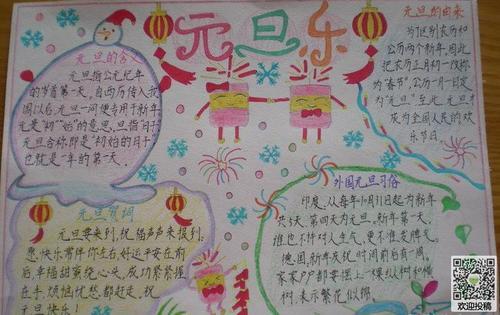 元旦乐
元旦的含义
元旦指公元纪年
的岁首第一天。自西历传入我
国以后,元旦一词便专用于新年。
元是"初""始"的意思,旦指"日子"
元旦合称即是"初始的日子"
也就是一年的第一天。
元旦的由来
为区别农历和
公历两个新年,因此
把农历正月初一改称
为"春节",公历一月一日定
为"元旦"至此,元旦才
成为全国人民的欢
乐节日
元旦贺词
元旦要来到,祝福声声来报到。
愿:快乐常伴你左右好运平安在前
后,幸福甜蜜绕心头,成功紧紧握
在手,烦恼忧愁都赶走。祝
元旦快乐!
外国元旦习俗
印度,从每年10月31日起为新年
共5天,第四天为元旦。新年第一天,
谁也不许对人生气,更不准发脾气。
德国,新年庆祝时间前后有一周。
家家户户都要摆上一棵枞树和横
树,表示繁花似锦。
欢迎投稿